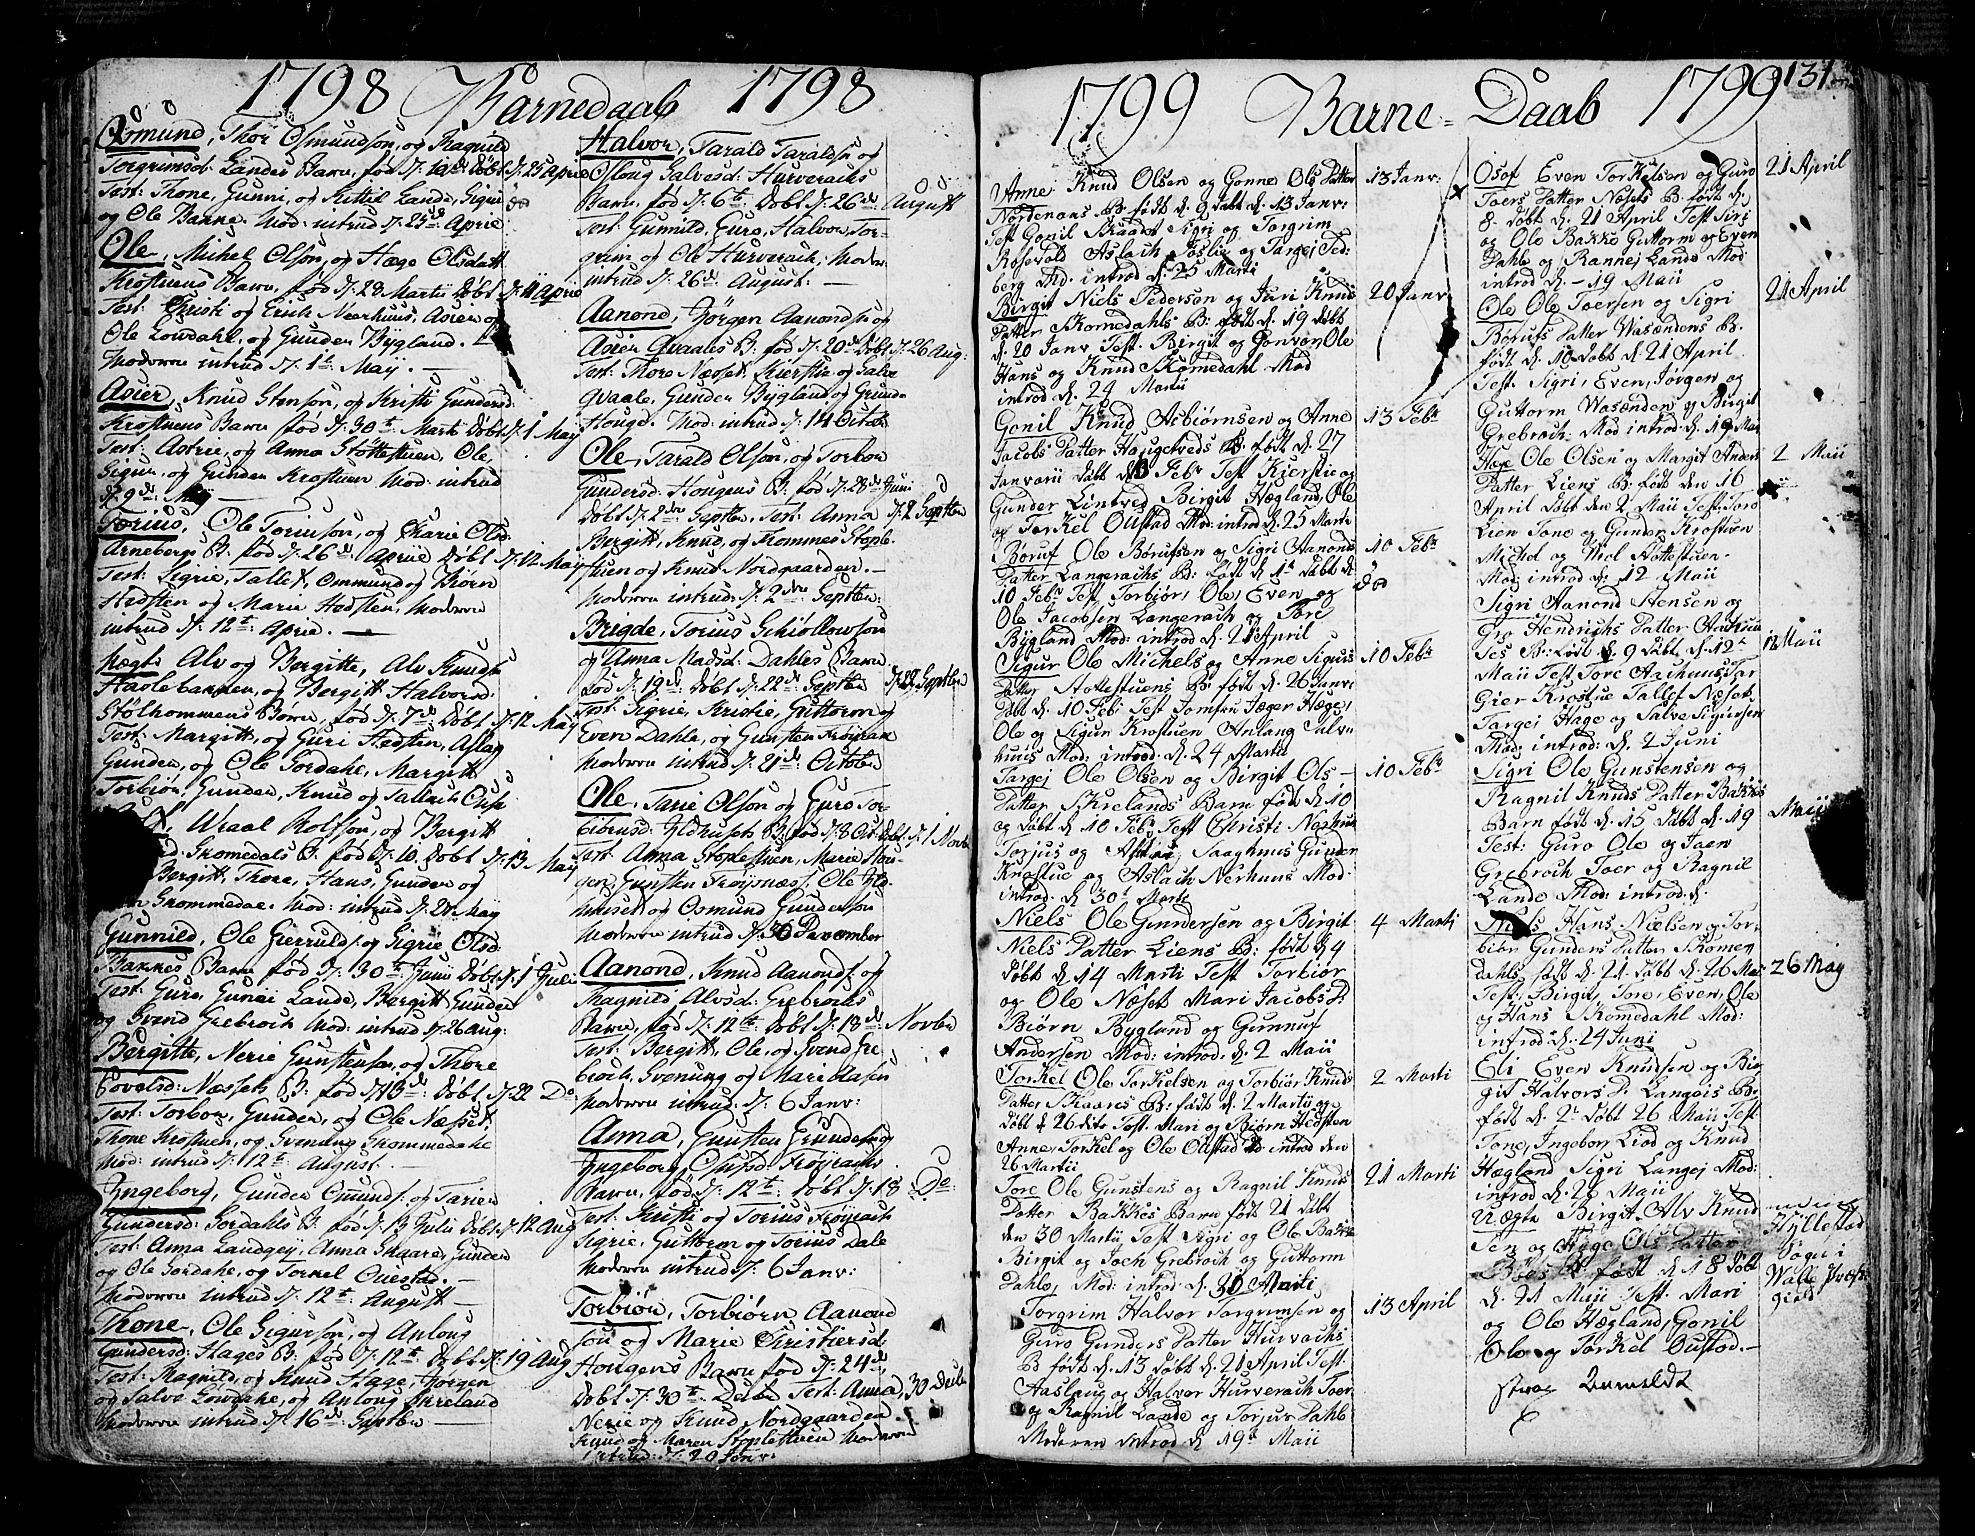 1798 Barnedaab 1798
Osmund, Thor Osmundson, og Ragnild
Torgrimsd: Landes Barn, fød d: 10de Døbt d: 25 Aprie
Test: Thone, Gunni, og Kittil Lande, Sigrie
og Ole Barne. Mod: intrud d: 25de Aprie
Ole, Michel Olson, og Hæge Olsdatt
Krostuens Barn, fød d: 28 Martii Døbt d: 11 Aprie
Test: Christi og Erich Neerhuus, Asier og
Ole Lowdahl, og Gunder Bygland.
Moderen intrud d: 1te Maij.
Asier, Knud Stenson, og Kristi Gundersd:
Krostuens Barn fød d: 30te Marti Døbt d: 1 May
Test: Astrie, og Anna Støttestuen, Ole,
Sigur, og Gunder Krostuen Mod: intrud
d: 9de Maij
Torius, Ole Toriuson, og Marie Olsd:
Arnebergs B: fød d: 26de Aprie Døbt d: 12 May
Test: Sigrie, Tallef, Ommund og Biørn
Hedsten og Marie Hodsten, Moderen
intrud d: 12te Aprie.
Uægte Alv og Bergitte, Alv Knuds:
og Bergitt Halvorsd:
Børn, fød d: 7de Døbt d: 12 May
Test: Margitt, og Guri Hedsten, Aslag
Gunder, og Ole Sordahl, Margitt
Torbiør, Gunder, Knud og Tallach
Wraal Rolfson, og Bergitt
Skomedals B: fød d: 10. Døbt d: 13 May
Bergitt, Thore, Hans, Gunder og
Skommedae. Mod: intrud d: 28 May
Gunnild, Ole Gierruls: og Sigrie Olsd:
Bakkes Barn fød d: 30te Junii Døbt d: 1 Juli
Test: Guro, Gunni Lande, Bergitt Gunder
og Svend Grebroch Mod: intrud d: 26 aug:
Bergitte, Nerie Gunstenson, og Thore
Povelsd: Næssets B: fød d: 18de Døbt d: 22 Do
Test: Torbor, Gunder, og Ole Næsset,
Thone Krostuen, og Svenung Skommedahl
Mod: intrud d: 12te August.
Ingeborg, Gunder Omunds: og Tarien
Gundersd: Sordahls B: fød d: 13 Julii Døbt d: 12 Aug
Test: Anna Landgej, Anna Skaare, Gunder
og Ole Sordahl, og Torkel Ouestad.
Moderen intrud d: 12te August
Thone, Ole Sigurson, og Anloug
Gundersd: Hages B: fød d: 12te Døbt d: 19 Aug
Test: Ragnild, og Knud Hage, Jørgen
og Salve Lowdahl, og Anloug Skreland
Moderen intrud d: 16de Septbr
Halvor, Tarald Taraldsen og
Osloug Salvesd: Hurverachs
Barn, fød d: 6te Døbt d: 26de August
Test: Gunnild, Guro, Halvor, Tor-
gram og Ole Hurverach, Moder:
intrud d: 26de August:
Aanond, Jørgen Aanondsen og
Asier Qvaales B: fød d: 20de Døbt d: 26 Aug:
Test: Thore Næsset, Kierstie og Salve
Qvaale, Gunder Bygland og Gunder
Houge. Mod: intrud d: 14 Octobr
Ole, Tarald Olson, og Torbor
Gundersd: Hougens B: fød d: 28de Juni
Døbt d: 2den Septbr, Test: Anna d: 2 Septbr
Bergitt, Knud, og Kommes Stople-
stuen og Knud Nordgaarden.
Moderen intrud d: 2den Septbr:
Brigde, Torius Schiøllowson
og Anna Madsd: Dahles Barn
fød d: 19de Døbt d: 22de Septbr d: 22 Septbr
Test: Sigrie, Kristie, Guttorm og
Even Dahle, og Gunsten Frøyrach
Moderen intrud d: 21de Octobr
Ole, Tarie Olson og Guro Tor-
biørnsd: B: fød d: 8 Oct: Døbt d: 1 Novb
Test: Anna Stoplestuen, Marie
Gunsten Frøysnæss, Ole
og Osmund Gunderson
Moderen intrud d: 30 December
Aanond, Knud Aanonds: og
Thagnild Alvsd: Grebrochs
Barn, fød d: 12te Døbt d: 18de Novbr
Test: Bergitt, Ole, og Svend Gre
broch, Svenung og Mari Aasen
Moderen intrud d: 6 Janv:
Anna, Gunsten Gunderson og
Ingeborg Olufsd: Frøyrachs
Barn, fød d: 12te: Døbt d: 18 Do
Test: Kristi og Torius Frøyrach
Sigrie, Guttorm og Torius Dale
Moderen intrud d: 6 Janv:
Torbiør, Torbiørn Aanond
son og Marie Christensd
Hougens Barn fød d: 24de
Døbt d: 30te Decbr Test: Anna, 30 Decbr
Nerie og Knud Nordgaarden.
Knud og Maren Stoplestuen Moderen
intrud: d: 20 Janv:
1799 Barne-Daab 1799 131
Anne Knud Olsen og Gonne Ols Datter 13 Janv:
Nordenaas B: født d. 9 Døbt d. 13 Janv:
Test Gonil Skaadt Sigri og Torgrim
Rosevold Aslach Joslie og Targej Fed-
berg Md. introd d: 25 Marti
Birgit Niels Pederson og Juri Knuds 20 Janv
Datter Skomedahls B: født d. 19 Døbt
d. 20 Janv Test. Birgit og Gonvor, Ole
Hans og Knud Skomedahl Mod
introd d. 24 Martii
Gonil Knud Asbiørnsen og Anne 13 Febr
Jacobs Datter Haugetveds B: født d. 27
Janvarii Døbt d. 13 Febr Test Kierstie og
Gunder Lintved Birgit Hægland, Ole
og Torkel Oustad Mod: introd d. 25 Marti
Boruf Ole Børufsen og Sigri Aanonds 10 Febr
Datter Langerachs B: født d. 1te Døbt d: død
10 Febr Test Torbiør, Ole, Even og
Ole Jacobsen Langerach og Tore
Bygland Mod: introd d. 21 April
Sigur Ole Michels og Anne Sigurs 10 Febr
Datter Hottestuens B: født d. 26 Janv:
Døbt d. 10 Feb: Test Jomfru Jæger Hæge,
Ole og Sigur Krostuen Anlaug Salv
huus Mod: introd: d. 24 Martii
Targej Ole Olsen og Birgit Ols- 10 Febr
Datter Skrelands Barn født d. 10
og Døbt d. 10 Febr Test Christi Nerhuus
Torjus og Saaghuus Gunder
Krostue og Aslach Nerhuus Mod.
introd. d. 30te Marti
Niels Ole Gundersen og Birgit 4 Marti
Niels Datter Liens B: født d. 4
Døbt d. 14 Marti Test Torbiør
og Ole Næset Mari Jacobs D:
Biørn Bygland og Gunnuf
Andersen Mod: introd. d. 2 Maii
Torkel Ole Torkelsen og Torbiør Knuds 2 Marti
Datter Skaares B: født d. 2 Martii og
Døbt d 26 dito Test. Mari og Biørn Hedsten
Anne, Torkel og Ole Oustad introd den
26 Martii
Tore Ole Gunstens og Ragnil Knuds 21 Marti
Datter Bakkes Barn født 21 Døbt
den 30 Martii Test Sigri og Ole Bakke
Birgit og Joch Grebroch og Guttorm
Dahle, Mod: introd d. 30 Marti
Torgrim Halvor Torgrimsen og 13 April
Guro Gunders Datter Hurvachs
B: født d. 13 Døbt d. 21 April Test.
Aaslaug og Halvor Hurverach Toer
og Ragnil Lande og Torjus Dahle
Moderen introd d. 19de Maii
Osof Even Torkelsen og Guro 21 April
Toers Datter Næsets B: født d.
8. Døbt d. 21 April Test Siri
og Ole Bakke Guttorm og Even
Dahle og Rannej Lande Mod:
introd d. - 19 Maii
Ole Ole Toersen og Sigri 21 April
Børufs Datter Wasændens B.
født d. 10 Døbt d. 21 April
Test. Sigri, Even, Jørgen og
Guttorm Wasænden og Birgit
Grebroch Mod introd d. 19 Mai
Hæge Ole Olsen og Margit Anders 2 Maii
Datter Liens B: født den 16
April Døbt den 2 Maii Test: Tore
Lien Tone og Gunder Krostuen
Michel og Niol Hottestuen
Mod: introd d: 12 Maii
Sigri Aanond Jensen og
Gro Hendrichs Datter
B: født d. 9 Døbt d. 12te 12 Maii
Maii Test Tore Aarhuus Tar
Krostue Tallef Næset.
Targej Hage og Salve Sigursen
Mod: introd: d. 2 Juni
Sigri Ole Gunstensen og
Ragnil Knuds Datter Bakkes
Barn født d. 15 Døbt d. 19 Maii
Test: Guro Ole og Joen
Grebroch Toer og Ragnil
Lande Mod: introd: d.
Niels Hans Nielsen og Tor-
biør Gunders Datter Skomen
dahls, født d. 21 Døbt d. 26 Mai 26 May
Test: Birgit, Tone, Even, Ole
og Hans Skomedahl Mod:
introd d: 24 Junii
Eli Even Knudsen og Bir
git Halvors D: Langeis B:
født d. 2te Døbt 26 Maii Test
Tone, Ingeborg Liod og Knud
Hægland Sigri Langej Mod:
introd d. 26 Maii
Uægte Birgit Alv Knud
sen og Hæge Ols Datter Hyllestad
født d. 18 Døbt Sogn i
d. 21 Maii Test. Mari Walle Præste
og Ole Hægland, Gonil gield
Ole og Torkel Oustad.
strax anmeldt